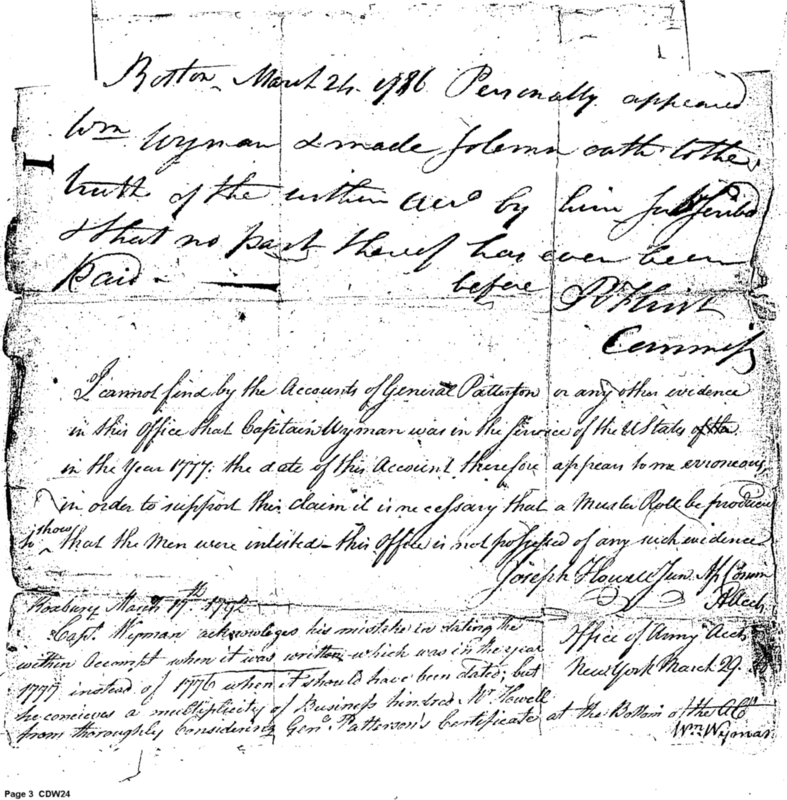 Boston March 24. 1786 Personally appeared
Wm Wyman & made Solemn oath to the
truth of the within Acco by him Subscribed
& that no part thereof has ever been
Paid -
before
Commiss
I cannot find by the Accounts of General Patterson or any other evidence
in this Office that Captain Wyman was in the Service of the U States
in the Year 1777: the date of this Account therefore appears to me erroneous,
in order to support this claim it is necessary that a Muster Roll be produced
to show that the Men were inlisted - this Office is not possessed of any such evidence
Joseph Howell Jun. As Comm
Accts
Office of Army Accts
New York March 29.
Roxbury March 17th
Capt. Wyman acknowleges his mistake in dating the
within Accompt when it was written which was in the year
1777 instead of 1776 when it should have been dated; but
he concieves a multiplicity of Business hindred Mr Howell
from thoroughly Considering Genl Patterson's Certificate at the Bottom of the
Wm Wyman
Page 3 CDW24